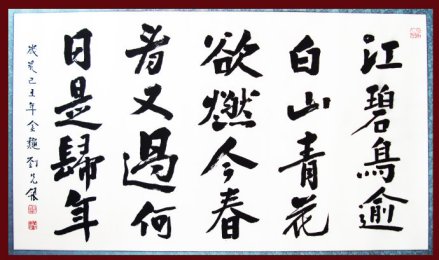 江碧鳥逾
白山青花
欲燃今春
看又過何
日是歸年
己丑年